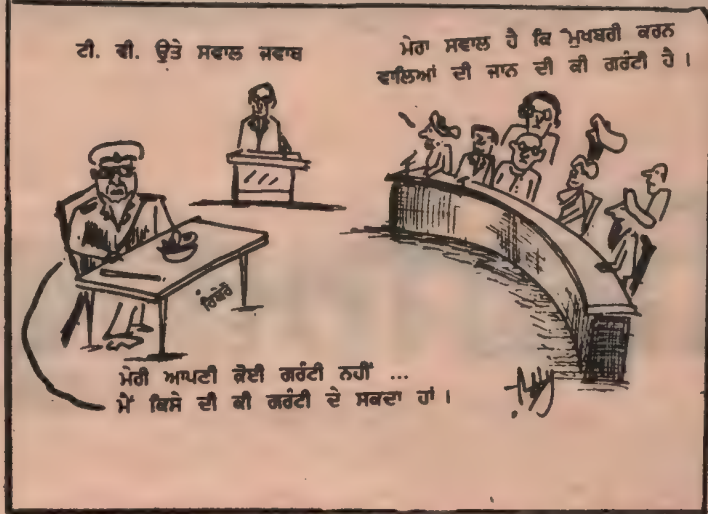 ਟੀ. ਵੀ. ਉਤੇ ਸਵਾਲ ਜਵਾਬ
ਮੇਰਾ ਸਵਾਲ ਹੈ ਕਿ ਮੁਖਬਰੀ ਕਰਨ
ਵਾਲਿਆਂ ਦੀ ਜਾਨ ਦੀ ਕੀ ਗਰੰਟੀ ਹੈ।
ਮੇਰੀ ਆਪਣੀ ਕੋਈ ਗਰੰਟੀ ਨਹੀਂ ...
ਮੈਂ ਕਿਸੇ ਦੀ ਕੀ ਗਰੰਟੀ ਦੇ ਸਕਦਾ ਹਾਂ।